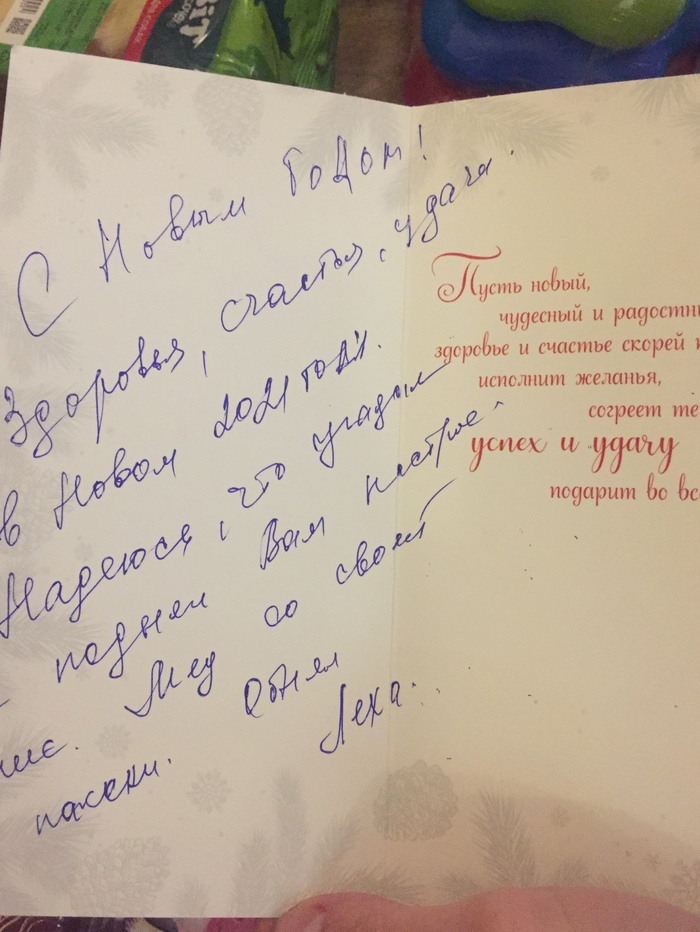 С Новым Годом!
Здоровья, счастья, удачи.
в Новом 2021 году.
Надеюсь, что угадал
и поднял Вам настрое-
ние. Мёд со своей
пасеки. Обнял
Лёха.
Пусть новый,
чудесный и радостн
здоровье и счастье скорей
исполнит желанья,
согреет те
успех и удачу
подарит во вс